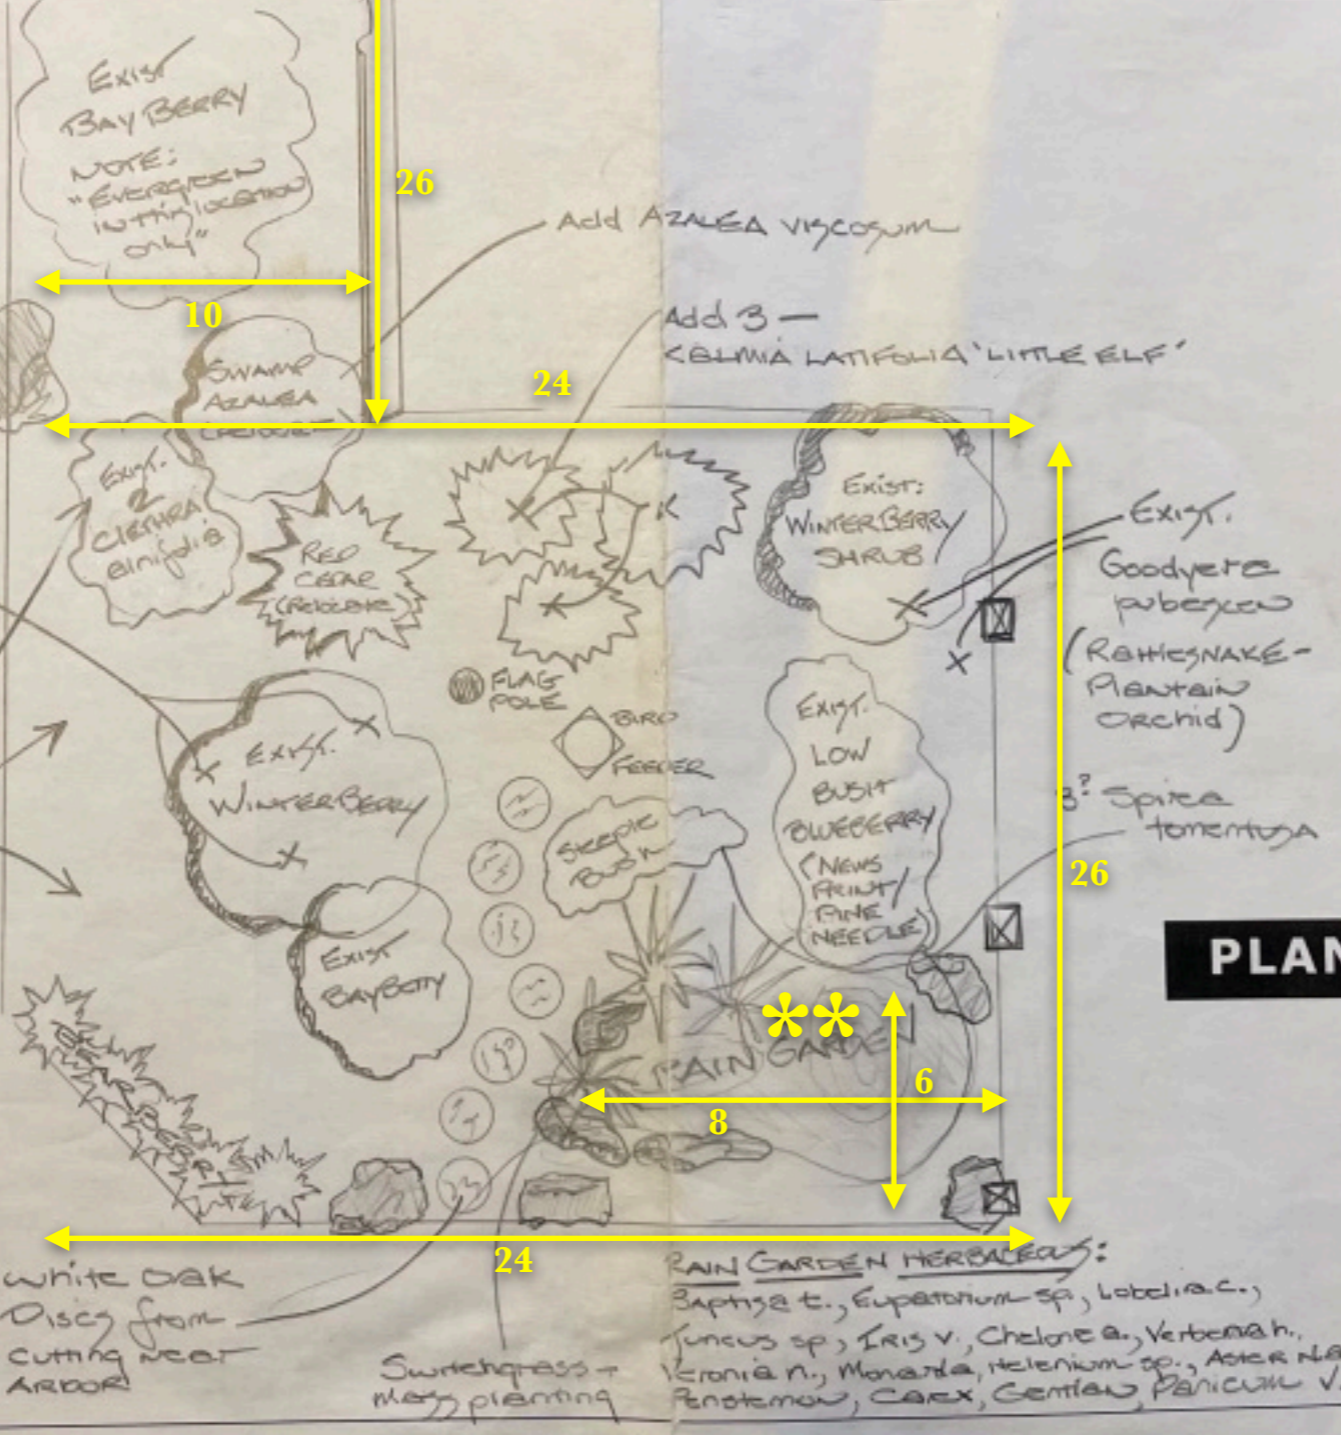 EXIST
BAYBERRY
NOTE:
"EVERGREEN
IN this location
only"
26
Add AZALEA VISCOSUM
10
Add 3 —
KALMIA LATIFOLIA 'LITTLE ELF'
SWAMP
AZALEA
24
EXIST.
2
CLETHRA
alnifolia
EXIST:
WINTERBERRY
SHRUB
EXIST.
Goodyera
pubescen
(RATTLESNAKE-
Plantain
Orchid)
RED
CEDAR
(Relocate)
FLAG
POLE
BIRD
FEEDER
EXIST.
WINTERBERRY
EXIST.
LOW
BUSH
BLUEBERRY
(NEWS
PRINT/
PINE
NEEDLE)
3? Spirea
tomentosa
26
STEEPLE
BUSH
EXIST
PLAN
**
RAIN GARDEN
6
8
24
White Oak
Discs from
cutting near
ARBOR
Switchgrass -
mass planting
RAIN GARDEN HERBACEOUS:
Baptisa t., Eupatorium sp., Lobelia c.,
Juncus sp, IRIS v., Chelone a., Verbena h.,
Veronia n., Monarda, Helenium sp., Aster N.A
Penstemon, CAREX, Gentian, Panicum v.